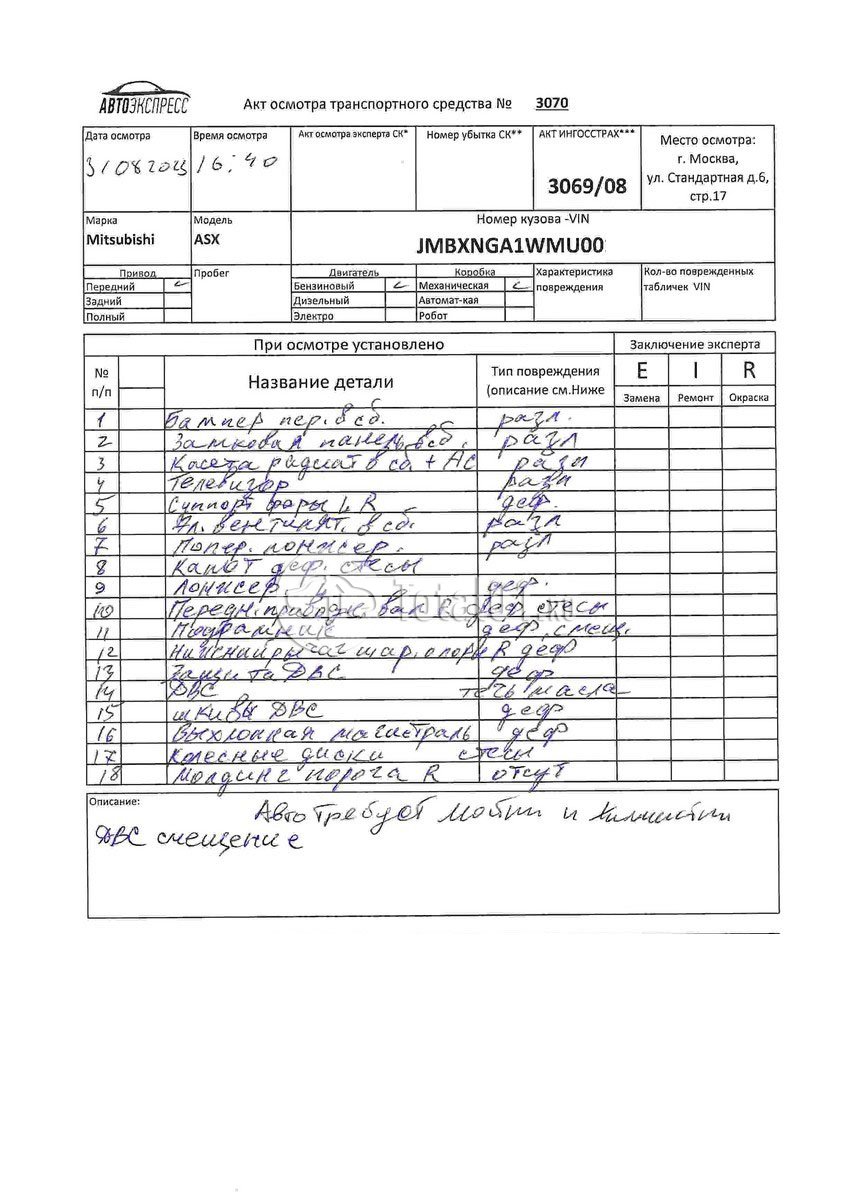 АВТОЭКСПРЕСС
Акт осмотра транспортного средства № 3070
Дата осмотра Время осмотра Акт осмотра эксперта СК* Номер убытка СК** АКТ ИНГОССТРАХ*** Место осмотра:
31082023 16:40 3069/08 г. Москва,
ул. Стандартная д.6,
стр.17
Марка Модель Номер кузова -VIN
Mitsubishi ASX JMBXNGA1WMU00
Привод Пробег Двигатель Коробка Характеристика повреждения Кол-во поврежденных табличек VIN
Передний Бензиновый Механическая
Задний Дизельный Автомат-кая
Полный Электро Робот
При осмотре установлено Заключение эксперта
№ п/п Название детали Тип повреждения (описание см.Ниже E I R
Замена Ремонт Окраска
1 Бампер пер. в сб. разл.
2 Замковая панель в сб. разл
3 Касета радиат в сб. + АС разл
4 Телевизор разл
5 Суппорт фары L R деф.
6 Эл. вентилят. в сб. разл
7 Попер. лонжер. разл
8 Капот деф. стесы
9 Лонжер деф.
10 Передн. приводн. вал R деф стесы
11 Подрамник деф. смещ.
12 Нижний рычаг шар. опоры R деф
13 Защита ДВС деф
14 ДВС течь масла
15 шкивы ДВС деф
16 Выхлопная магистраль деф
17 Колесные диски стесы
18 Молдинг порога R отсут
Total01.ru
Описание:
Авто требует мойки и химчистки
ДВС смещение